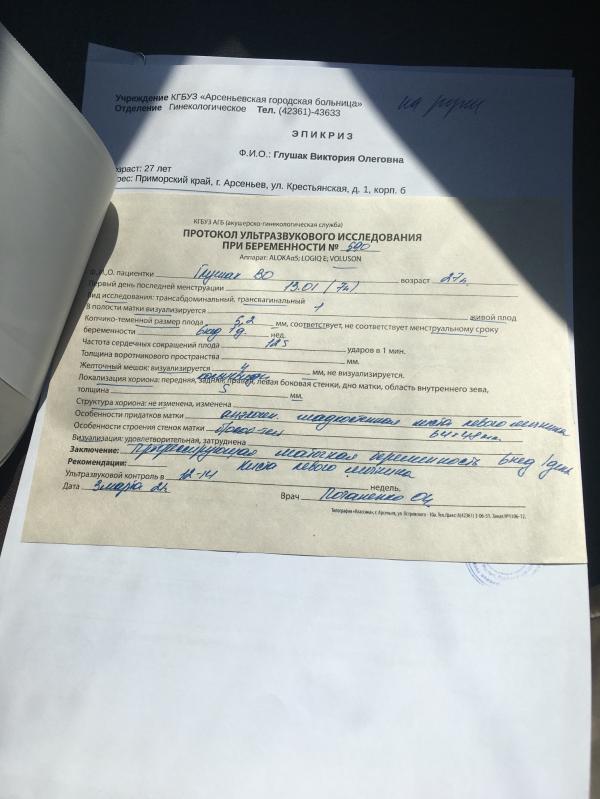 на руки
Учреждение КГБУЗ «Арсеньевская городская больница»
Отделение Гинекологическое Тел. (42361)-43633
ЭПИКРИЗ
Ф.И.О.: Глушак Виктория Олеговна
возраст: 27 лет
рес: Приморский край, г. Арсеньев, ул. Крестьянская, д. 1, корп. 6
КГБУЗ АГБ (акушерско-гинекологическая служба)
ПРОТОКОЛ УЛЬТРАЗВУКОВОГО ИССЛЕДОВАНИЯ
ПРИ БЕРЕМЕННОСТИ № 690
Аппарат: ALOKAα5; LOGIQ E; VOLUSON
Ф.И.О. пациентки Глушак ВО возраст 27л
Первый день последней менструации 19.01 (7н)
Вид исследования: трансабдоминальный, трансвагинальный
В полости матки визуализируется 1 живой плод
Копчико-теменной размер плода 5,2 мм, соответствует, не соответствует менструальному сроку
беременности 6нед 1д. нед.
Частота сердечных сокращений плода 125 ударов в 1 мин.
Толщина воротникового пространства мм.
Желточный мешок: визуализируется 4 мм, не визуализируется.
Локализация хориона: передняя, задняя, правая, левая боковая стенки, дно матки, область внутреннего зева,
толщина 5 мм.
Структура хориона: не изменена, изменена
Особенности придатков матки гладкостенная киста левого яичника
Особенности строения стенок матки
Визуализация: удовлетворительная, затруднена
Заключение: Прогрессирующая маточная беременность 6нед 1день
Рекомендации: киста левого яичника
Ультразвуковой контроль в 12-14 недель.
Дата 3 марта 22 Врач Потаненко ОЦ
Типография «Классика», г. Арсеньев, ул. Островского - 10а. Тел./факс: 8(42361) 3-06-51. Заказ №1106-12.